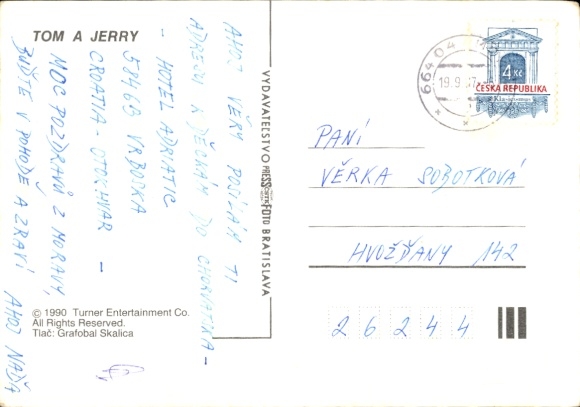 TOM A JERRY
AHOJ VĚRY POSÍLÁM TI
ADRESU K DĚCKÁM DO CHORVATSKA -
- HOTEL ADRIATIC
58463 VRBOSKA
CROATIA - OTOK HVAR -
MOC POZDRAVŮ Z MORAVY,
BUĎTE V POHODĚ A ZDRAVÍ AHOJ NAĎA
© 1990 Turner Entertainment Co.
All Rights Reserved.
Tlač: Grafobal Skalica
VYDAVATEĽSTVO PRESSFOTO BRATISLAVA
664 04
19.9.97
4 Kč
ČESKÁ REPUBLIKA
PANÍ
VĚRKA SOBOTKOVÁ
HVOŽĎANY 142
26244